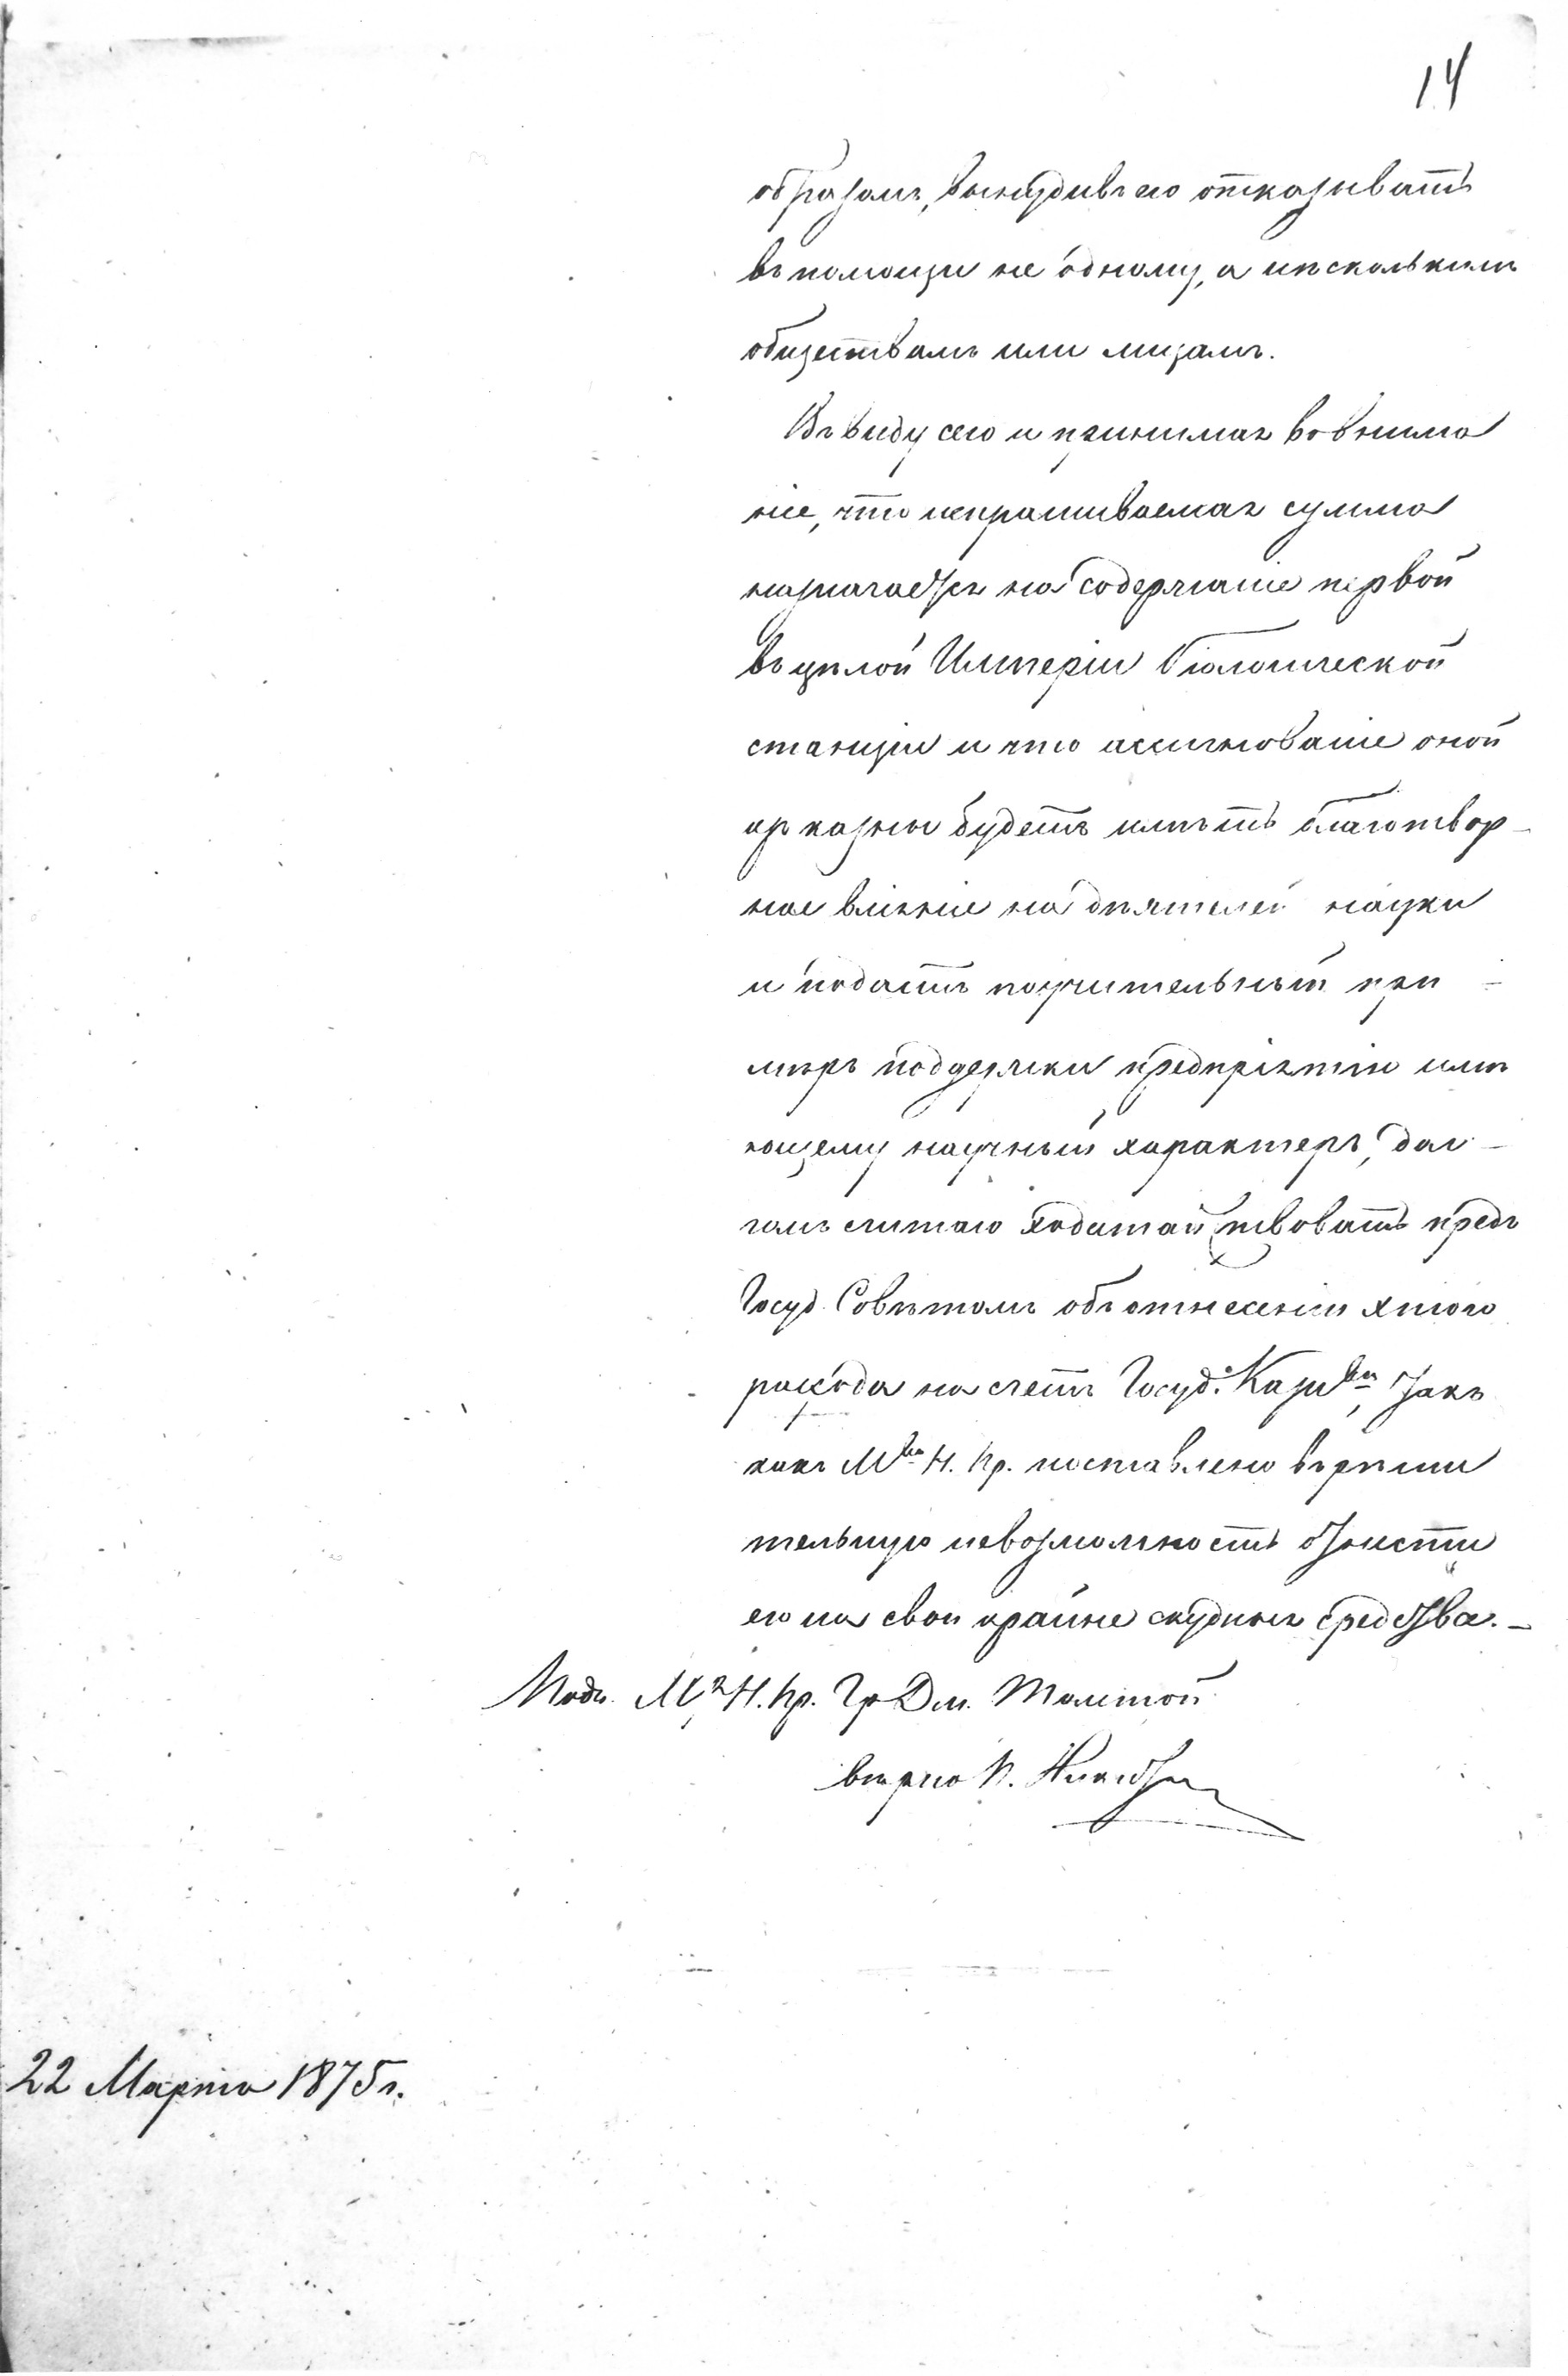 14
образомъ, вынудивъ его отказывать
въ помощи не одному, а нѣсколькимъ
обществамъ или лицамъ.
Въ виду сего и принимая во внима
ніе, что испрашиваемая сумма
назначается на содержаніе первой
въ цѣлой Имперіи біологической
станціи и что ассигнованіе оной
изъ казны будетъ имѣть благотвор-
ное вліяніе на дѣятелей науки
и подастъ поучительный при-
мѣръ поддержки предпріятію имѣ
ющему научный характеръ, дол-
гомъ считаю ходатайствовать предъ
Госуд. Совѣтомъ объ отнесеніи этого
расхода на счетъ Госуд. Казн-ва, такъ
какъ М-во Н. Пр. поставлено въ рѣши
тельную невозможность отнести
его на свои крайне скудныя средства.-
Подп. М-р Н. Пр. Гр Дм. Толстой
вѣрно
22 Марта 1875 г.